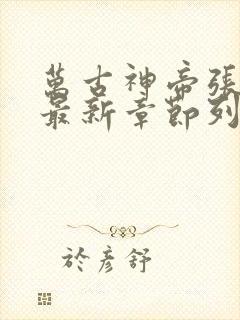 萬古神帝張
最新章節列
於彥舒